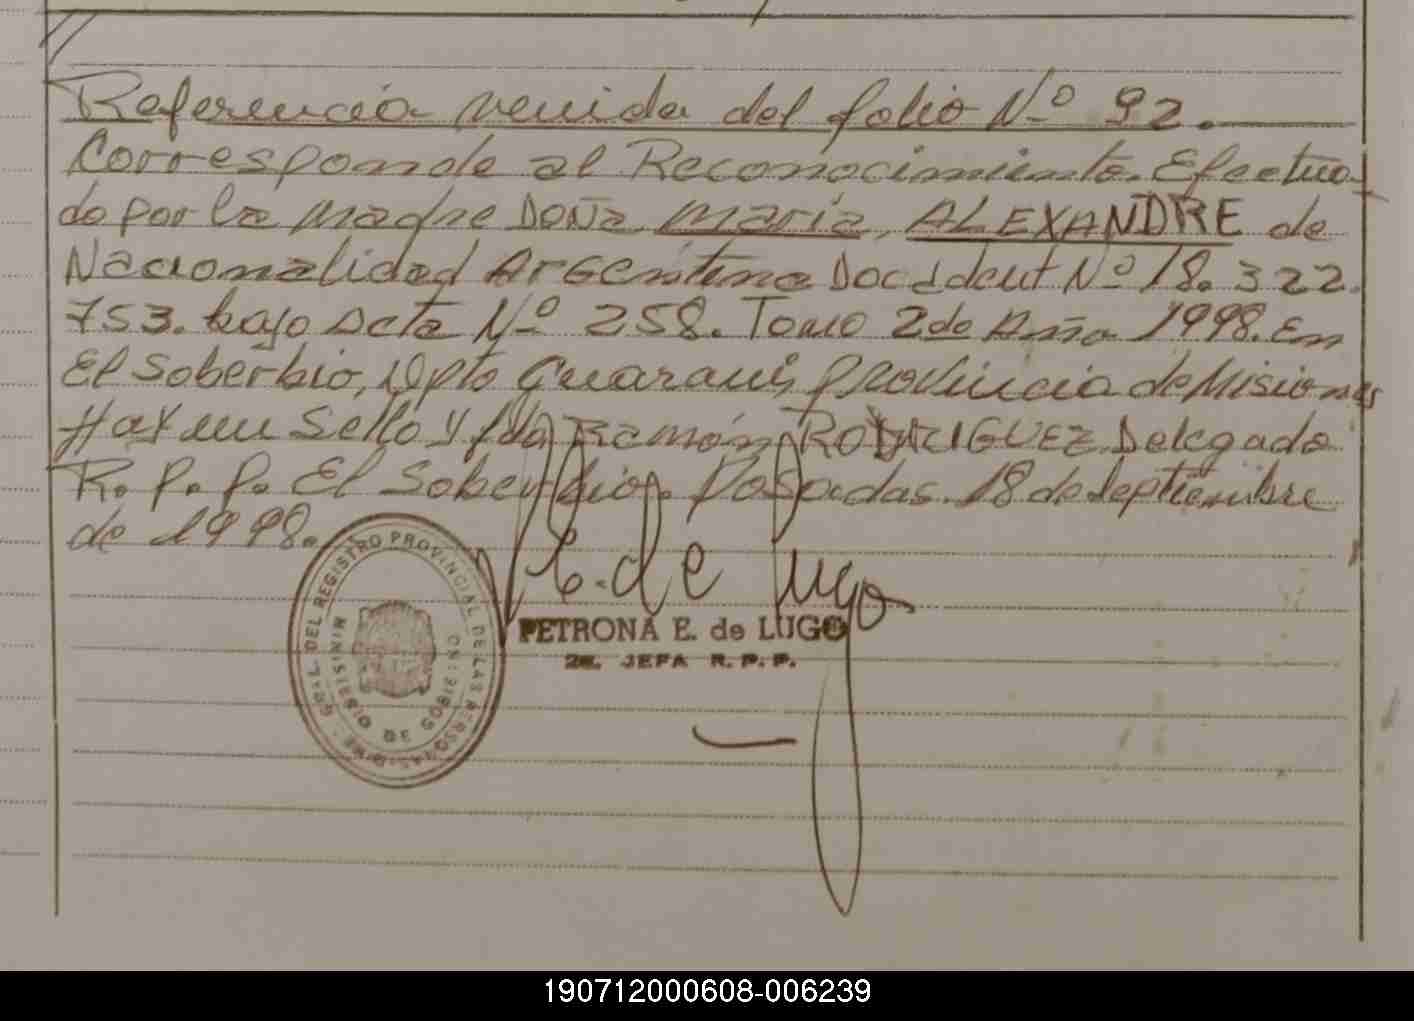 Referencia venida del folio Nº 92.
Corresponde al Reconocimiento Efectua-
do por la Madre DOÑA María, ALEXANDRE de
Nacionalidad Argentina Doc Ident Nº 18.322.
753. bajo Acta Nº 258. Tomo 2do Año 1998. En
El Soberbio, Dpto Guaraní, provincia de Misiones
Hay un Sello y fdo Ramón RODRIGUEZ Delegado
R. P. P. El Soberbio. Posadas. 18 de Septiembre
de 1998.
E. de Lugo
PETRONA E. de LUGO
2a. JEFA R.P.P.
GRAL. DEL REGISTRO PROVINCIAL DE LAS PERSONAS
MINISTERIO DE GOBIERNO
190712000608-006239